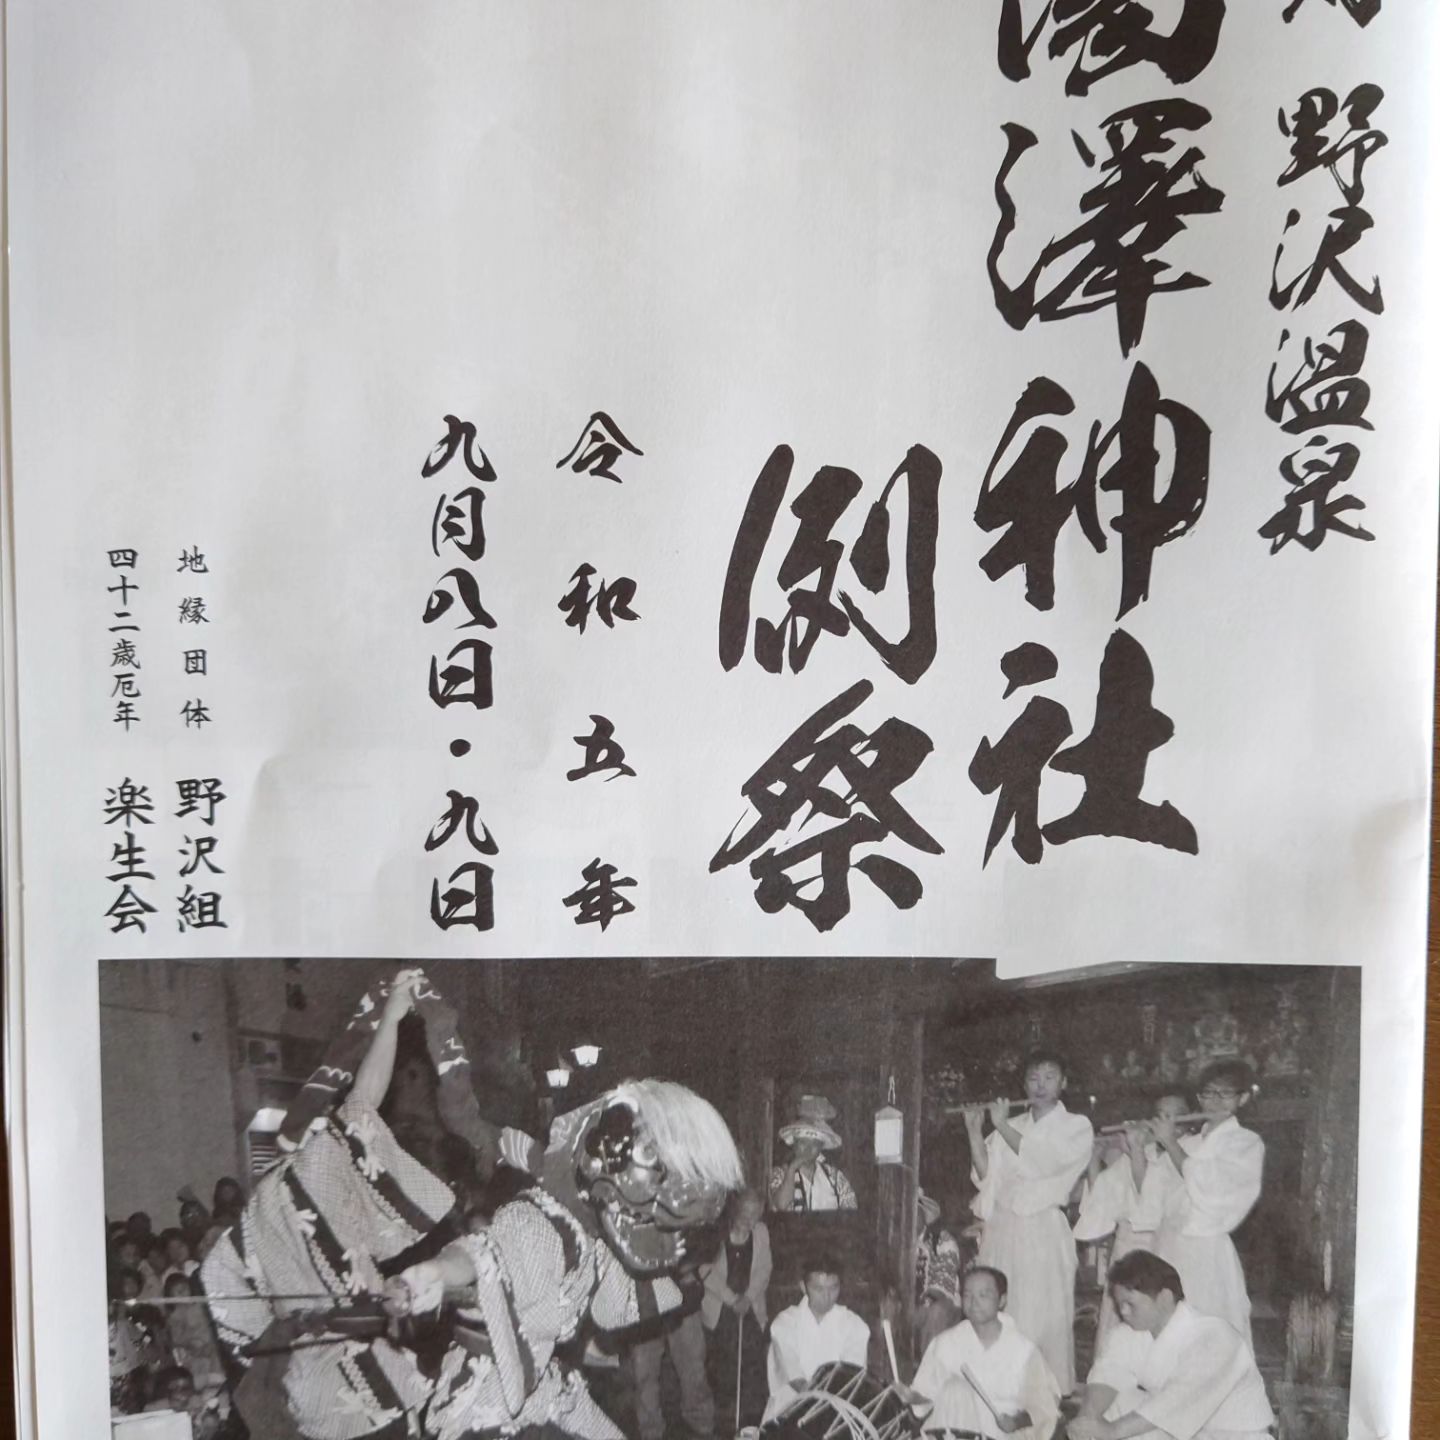 野沢温泉
湯澤神社
例祭
令和五年
九月八日・九日
地縁団体 野沢組
四十二歳厄年 楽生会